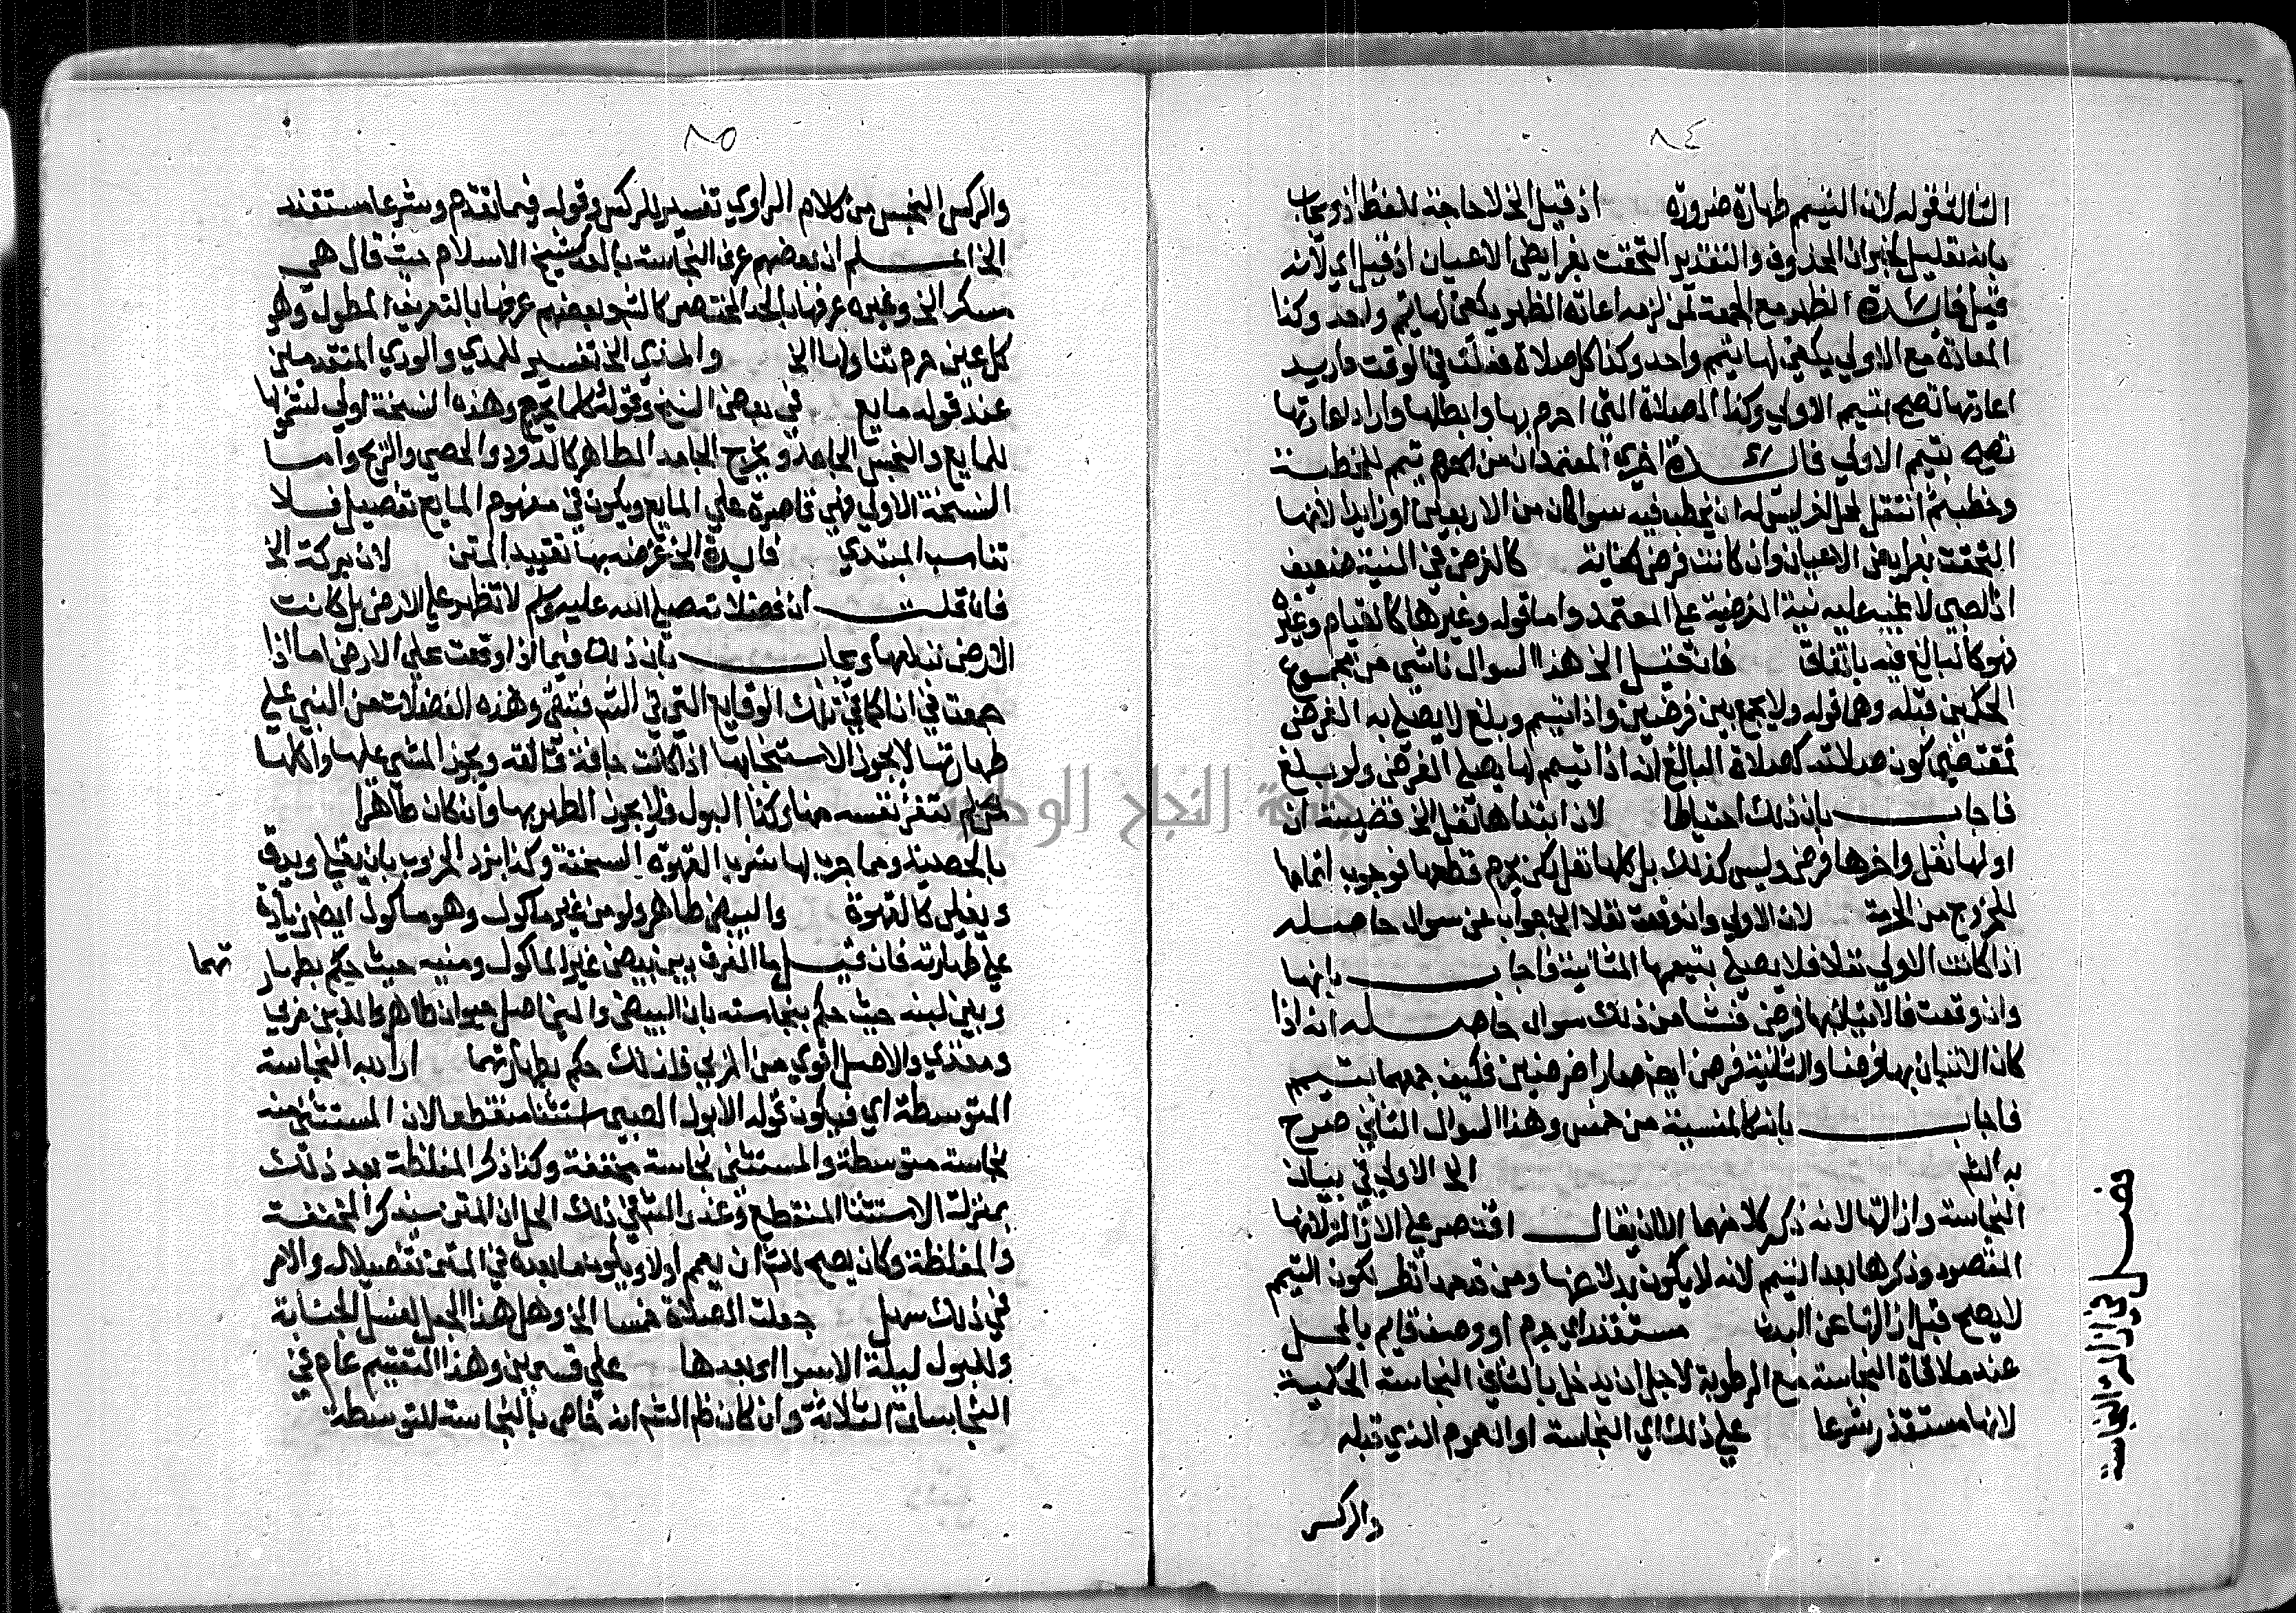 ٨٤
الثالث قوله لانه التيمم طهارة ضرورة اذ قيل الخ لا حاجة للفظ اذ ويجاب
بانه تعليل لخبر ان المحذوف والتقدير التحقت بفرايض الاعيان اذ قيل اي لانه
قيل فايدة الظهر مع الجمعة لمن لزمه اعادة الظهر يكفي لهما تيمم واحد وكذا
المعادة مع الاولي يكفي لهما تيمم واحد وكذا كل صلاة فعلت في الوقت واريد
اعادتها تصح بتيمم الاولي وكذا الصلاة التي احرم بها وابطلها واراد اعادتها
تصح بتيمم الاولي فايدة اخري المعتمد ان من تيمم للخطبة
وخطب ثم انتقل لمحل اخر ليس له ان يخطب فيه سوا كان من الاربعين او زايدا لانها
التحقت بفرايض الاعيان وان كانت فرض كفاية كالفرض في النية ضعيف
اذ الصبي لا يجب عليه نية الفرضية علي المعتمد واما قوله وغيرها كالقيام وغيره
فهو كالبالغ فيه باتفاق فان قيل الخ هذا السوال ناشي من مجموع
الحكمين قبله وهما قوله ولا يجمع بين فرضين واذا تيمم وبلغ لا يصلي به الفرض
فمقتضي كون صلاته كصلاة البالغ انه اذا تيمم لها يصلي الفرض ولو بلغ
فاجاب بان ذلك احتياطا لان ابتداها نفل الخ قضيته ان
اولها نفل واخرها فرض وليس كذلك بل كلها نفل لكن يحرم قطعها فوجوب اتمامها
للخروج من الحرمة لان الاولي وان وقعت نفلا الخ جواب عن سوال حاصله
اذا كانت الاولي نفلا فلا يصلي بتيممها الثانية فاجاب بانها
وان وقعت فالاتيان بها فرض فنشا من ذلك سوال حاصله انه اذا
كان الاتيان بها فرضا والثانية فرض ايضا صارا فرضين فكيف جمعهما بتيمم
فاجاب بانه كالمنسية من خمس وهذا السوال الثاني صرح
به الشم الخ الاولي في بيان
النجاسة وازالتها لانه ذكر كلا منهما الا ان يقال اقتصر علي الازالة لانها
المقصود وذكرها بعد التيمم لانه لا يكون بدلا عنها ومن قدمها نظر لكون التيمم
لا يصح قبل ازالتها عن البدن مستقذر اي جرم او وصف قايم بالمحل
عند ملاقاة النجاسة مع الرطوبة لاجل ان يدخل بالثاني النجاسة الحكمية
لانها مستقذر شرعا علي ذلك اي النجاسة او الجرم الذي قبله
والركس
فصل في ازالة النجاسة
٨٥
والركس النجس من كلام الراوي تفسير للركس وقوله فيما تقدم وشرعا مستقذر
الخ اعلم ان بعضهم عرف النجاسة بالعد كشيخ الاسلام حيث قال هي
مسكر الخ وغيره عرفها بالحد المختصر كالشم وبعضهم عرفها بالتعريف المطول وهو
كل عين حرم تناولها الخ والمذي الخ تفسير للمذي والودي المتقدمين
عند قوله مايع في بعض النسخ وقوله كلما يخرج وهذه النسخة اولي لشمولها
للمايع والنجس الجامد ويخرج الجامد الطاهر كالدود والحصي والريح واما
النسخة الاولي فهي قاصرة علي المايع ويكون في مفهوم المايع تفصيل فلا
تناسب المبتدي فايدة الخ غرضه بها تقييد المتن لان بركة الخ
فان قلت ان فضلاته صلي الله عليه وسلم لا تظهر علي الارض بل كانت
الارض تبلعها ويجاب بان ذلك فيما اذا وقعت علي الارض اما اذا
جمعت في انا كما في تلك الوقايع التي في الشم فتبقي وهذه الفضلات من النبي علي
طهارتها لا يجوز الاستنجا بها اذا كانت جافة قالعة ويجوز المشي عليها واكلها
ان لم تنفر نفسه منها وكذا البول ولا يجوز الطهر بها وان كان طاهرا
بالحصية ومما جرب لها شرب القهوة السخنة وكذا بزر الخروب بان يقلي ويدق
ويغلي كالقهوة والبيض طاهر ولو من غير ماكول وهو ماكول ايضا زيادة
علي طهارته فان قيل ما الفرق بين بيض غير الماكول ومنيه حيث حكم بطهار تهما
وبين لبنه حيث حكم بنجاسته بان البيض والمني اصل حيوان طاهر واللبن مربي
ومغذي والاصل اقوي من المربي فلذلك حكم بطهارتهما اراد به النجاسة
المتوسطة اي فيكون قوله الا بول الصبي استثنا منقطعا لان المستثني منه
نجاسة متوسطة والمستثني نجاسة مخففة وكذا ذكر المغلظة بعد ذلك
بمنزلة الاستثنا المنقطع وعذر الشم في ذلك الحمل ان المتن سيذكر المخففة
والمغلظة وكان يصح للشم ان يعمم اولا ويكون ما بعده في المتن تفصيلا له والامر
في ذلك سهل جعلت الصلاة خمسا الخ وهل هذا الجعل لغسل الجنابة
وللبول ليلة الاسرا او بعدها علي قسمين وهذا التقسيم عام في
النجاسات الثلاثة وان كان ظم الشم انه خاص بالنجاسة المتوسطة
جامعة النجاح الوطنية